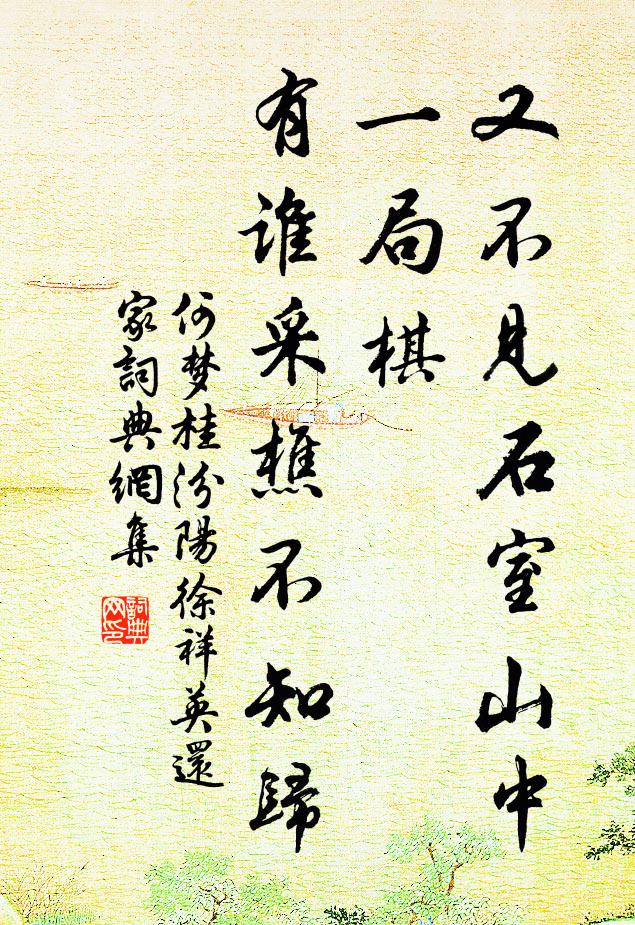 又不见石室山中
一局棋
有谁采樵不知歸
何梦桂汾陽徐祥英還
家詞典網集
詞典
网印